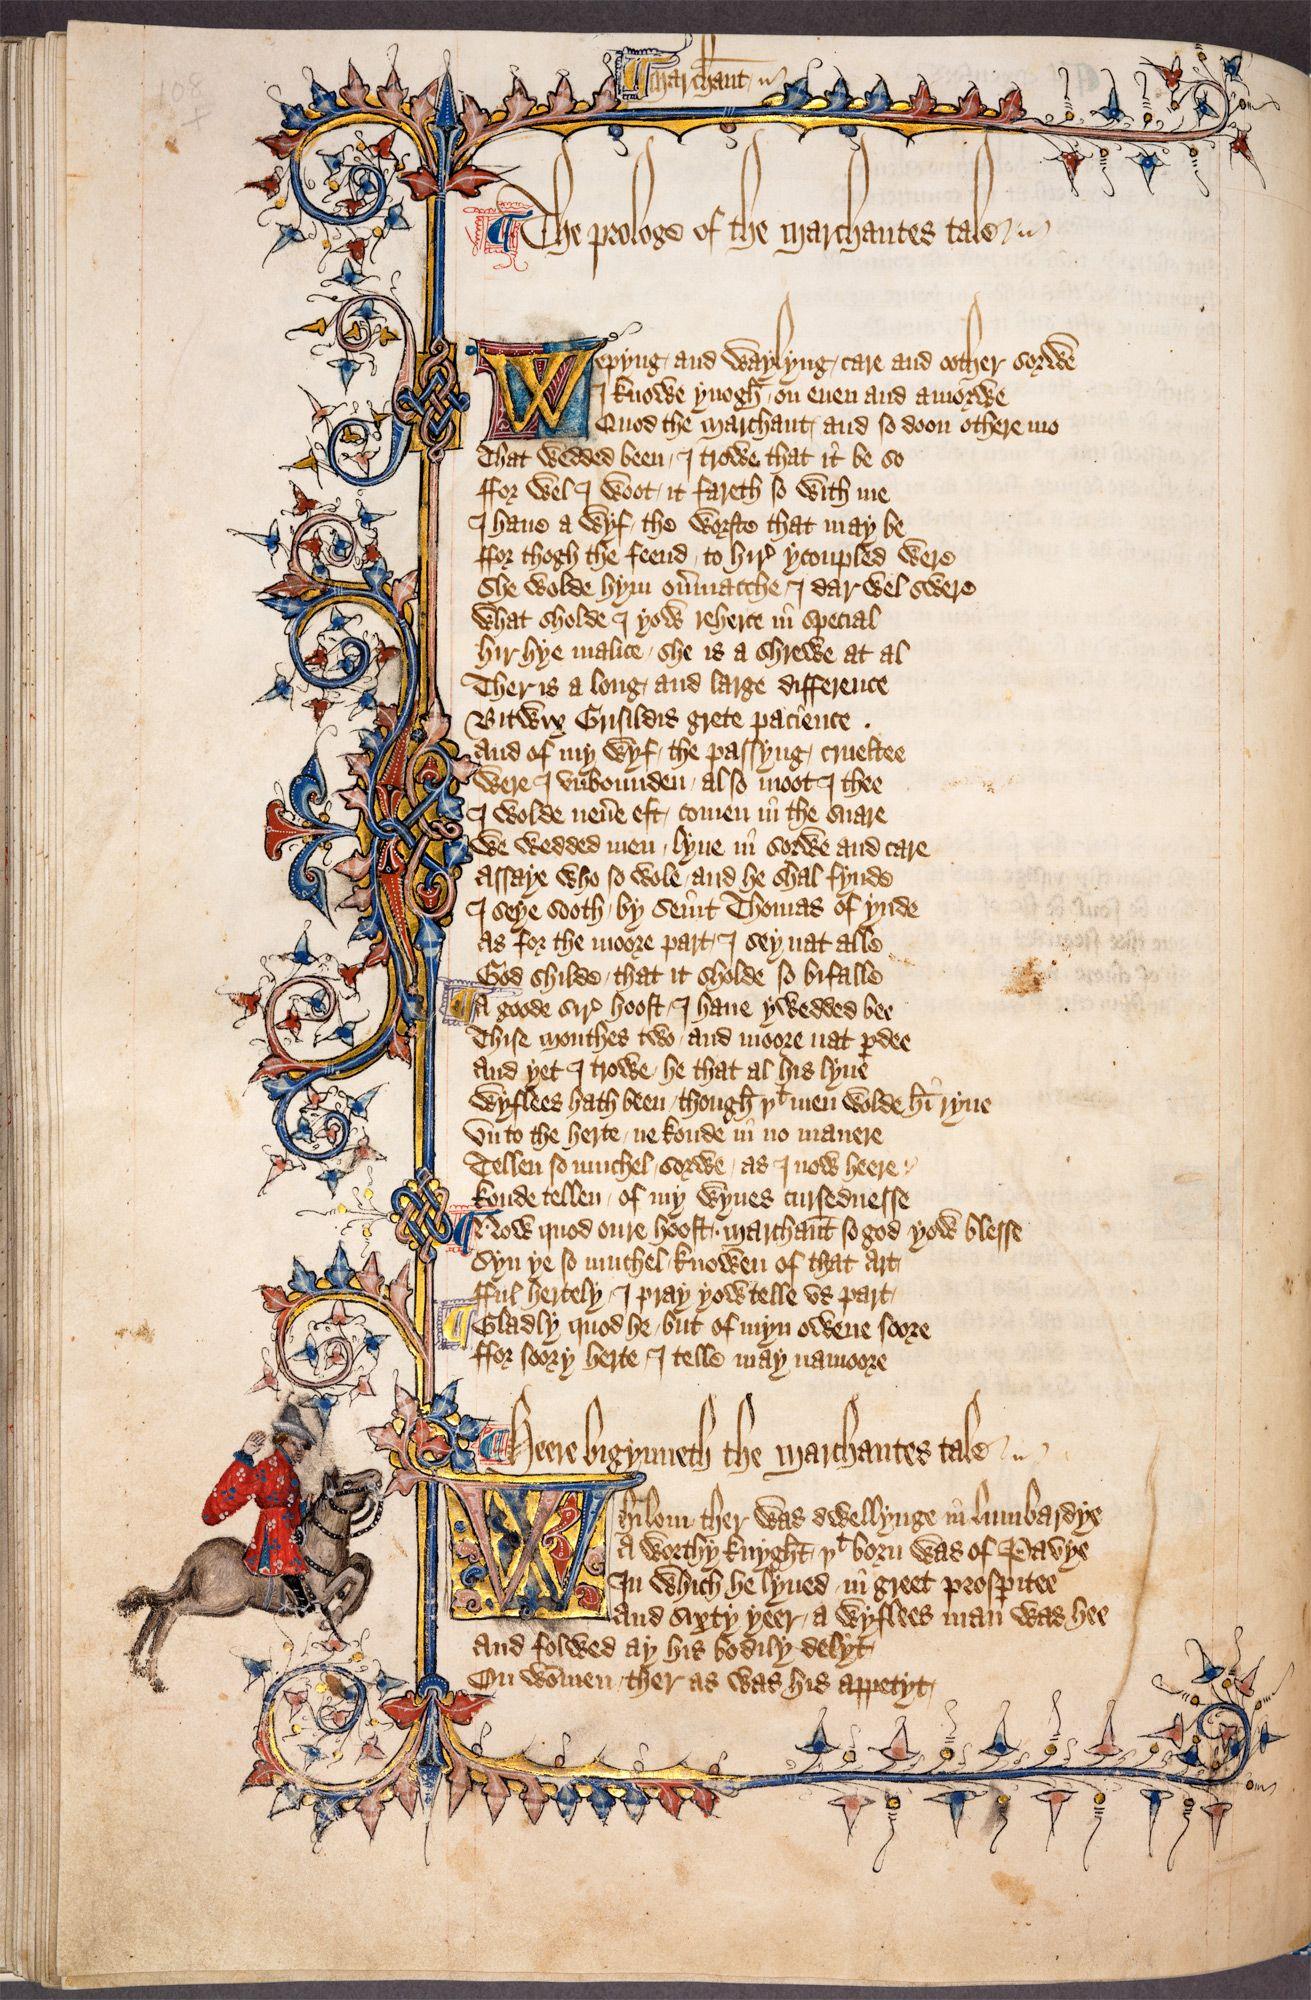 108
¶ Marchant
¶ The prologe of the Marchantes tale
Wepyng and waylyng / care and oother sorwe
I knowe ynogh / on euen and amorwe
Quod the Marchant / and so doon othere mo
That wedded been / I trowe that it be so
ffor wel I woot / it fareth so with me
I haue a wyf / the worste that may be
ffor thogh the feend / to hir ycoupled were
She wolde hym oũmacche / I dar wel swere
What sholde I yow reherce in special
Hir hye malice / she is a shrewe at al
Ther is a long and large difference
Bitwix Grisildis grete pacience .
And of my wyf / the passyng crueltee
Were I vnbounden / also moot I thee
I wolde neũe eft / comen in the snare
We wedded men / lyue in sorwe and care
Assaye who so wole / and he shal fynde
I seye sooth / by Seint Thomas of ynde
As for the moore part / I sey nat alle
God shilde / that it sholde so bifalle
¶ A goode sir hoost / I haue ywedded bee
Thise monthes two / and moore nat ꝑdee
And yet I trowe / he that al his lyue
Wyflees hath been / though þͭ men wolde hȳ ryue
Vn to the herte / ne koude in no manere
Tellen so muchel / sorwe / as I now heere
Koude tellen / of my wyues cursednesse
¶ Now quod oure hoost / Marchant so god yow blesse
Syn ye so muchel / knowen of that art
fful hertely / I pray yow telle vs part
¶ Gladly quod he / but of myn owene soore
ffor soory herte / I telle may namoore
¶ Heere bigynneth the Marchantes tale
Whilom ther was dwellynge in lumbardye
A worthy knyght / þͭ born was of Pavye
In which he lyued / in greet prosꝑitee
And sixty yeer / a wyflees man was hee
And folwed ay his bodily delyt
On wommen / ther as was his appetyt